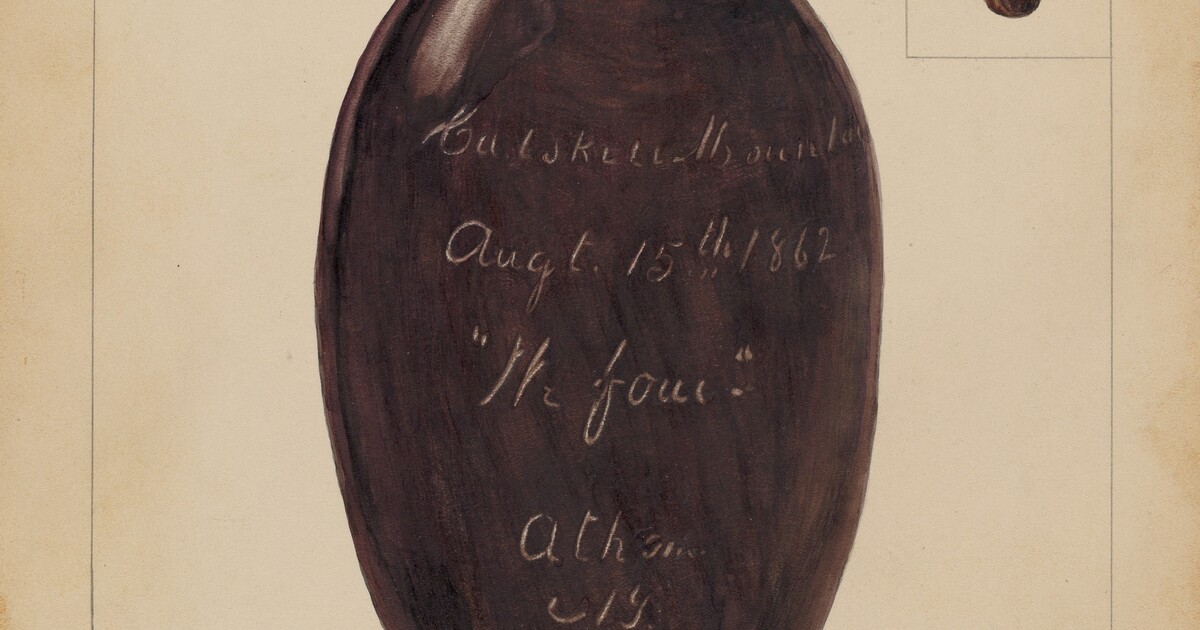 Catskill Mountai
Augt. 15th 1862
"We four"
Athens
NY.